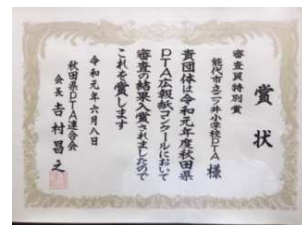 賞状
審査員特別賞
能代市立二ツ井小学校PTA 様
貴団体は令和元年度秋田県
PTA広報紙コンクールにおいて
審査の結果入賞されましたので
これを賞します
令和元年六月八日
秋田県PTA連合会
会長 吉村昌之